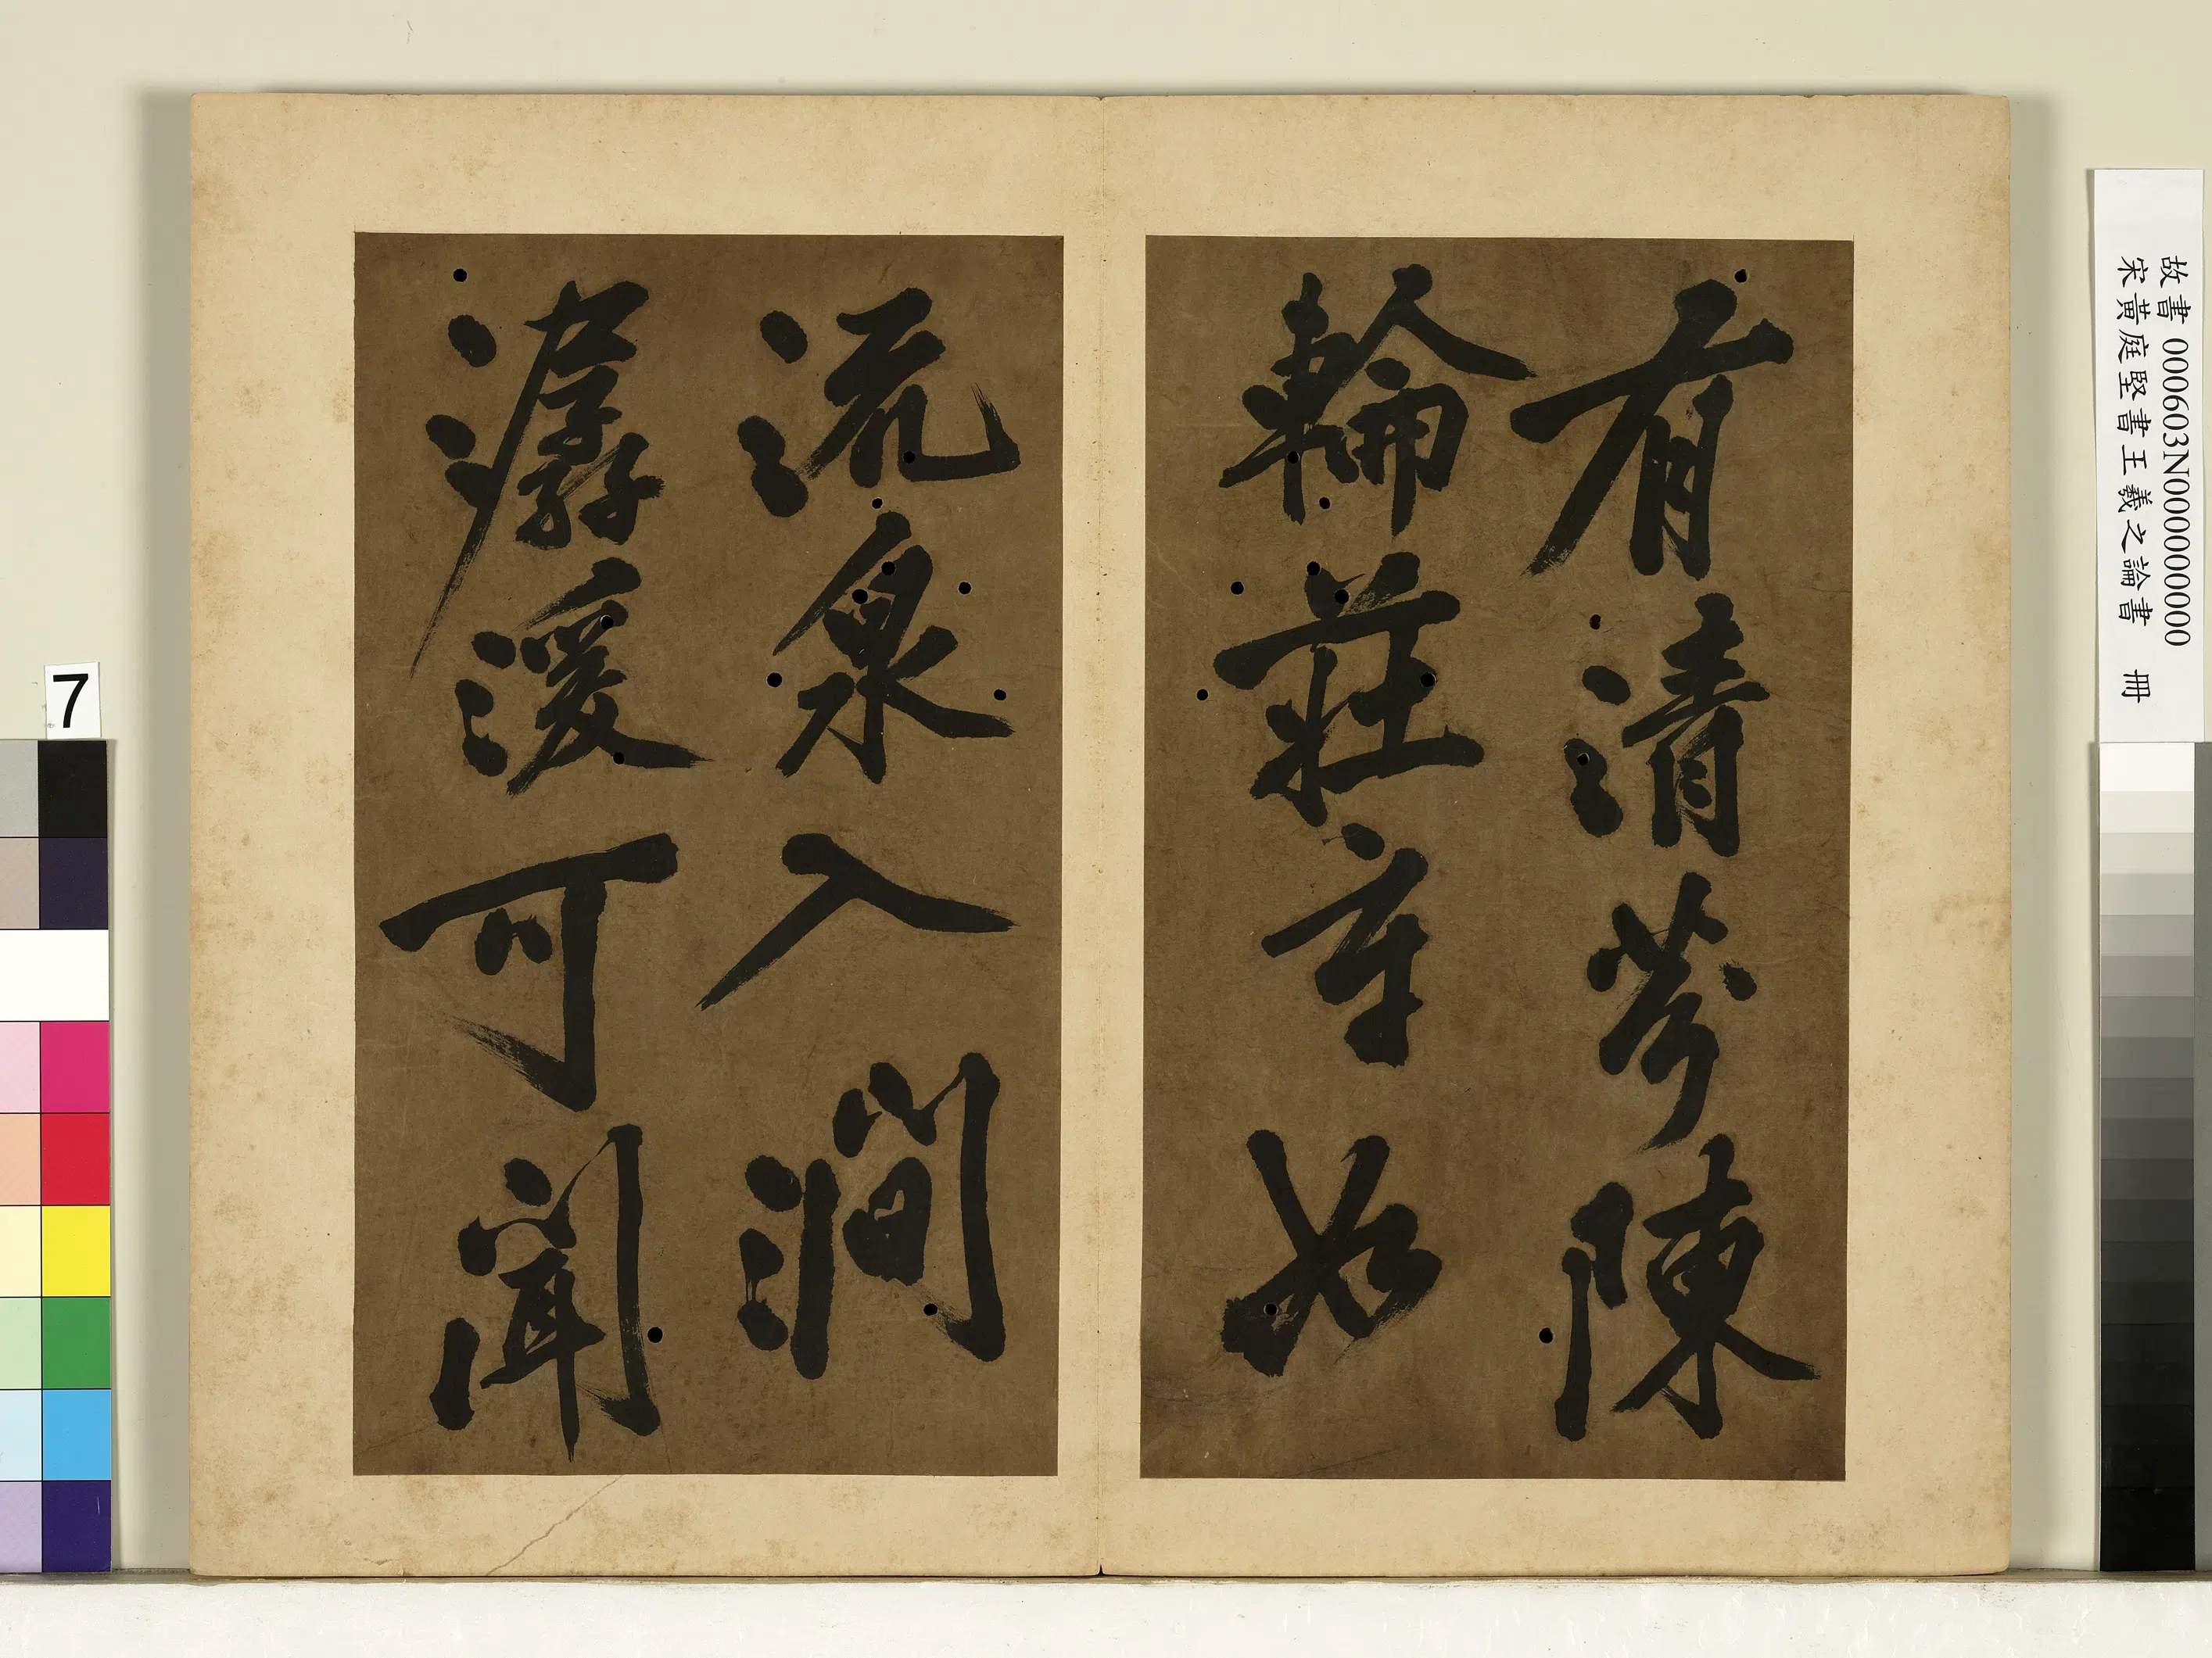 有清芬陳
輪莊如
流泉入澗
潺湲可聞
故書 000603N000000000
宋黃庭堅書王羲之論書 冊
7